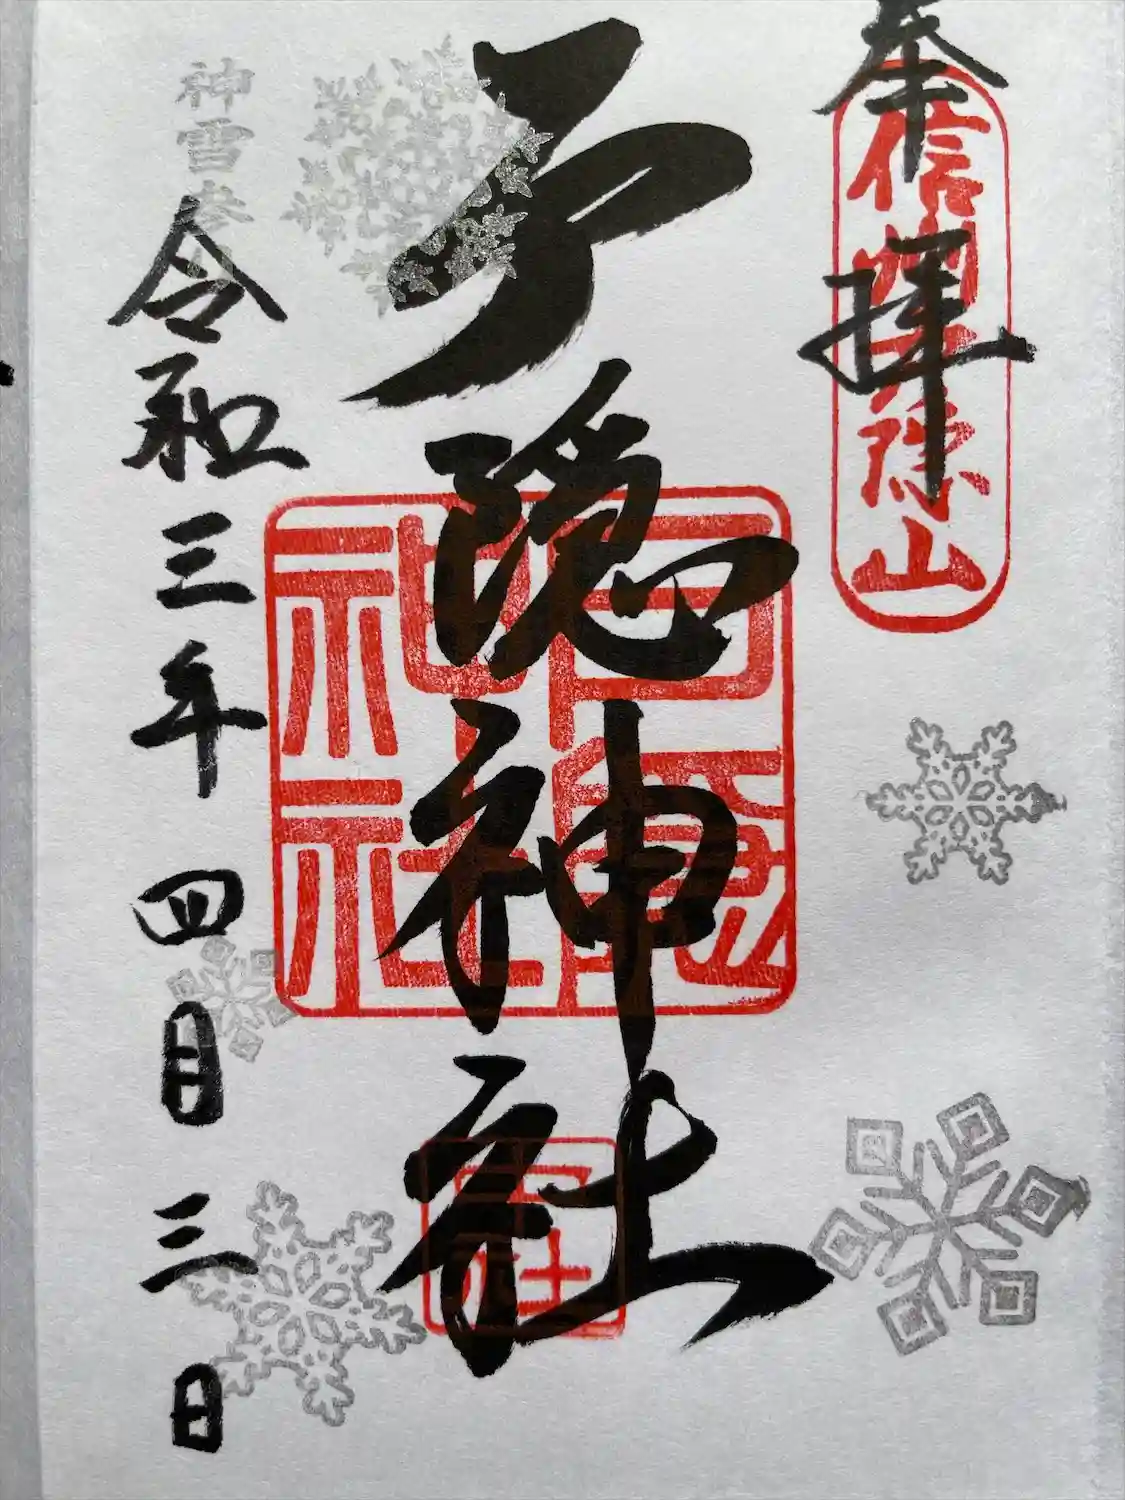 奉拝
信州戸隠山
戸隠神社
戸隠神社
宝社
神雪参
令和三年四月三日